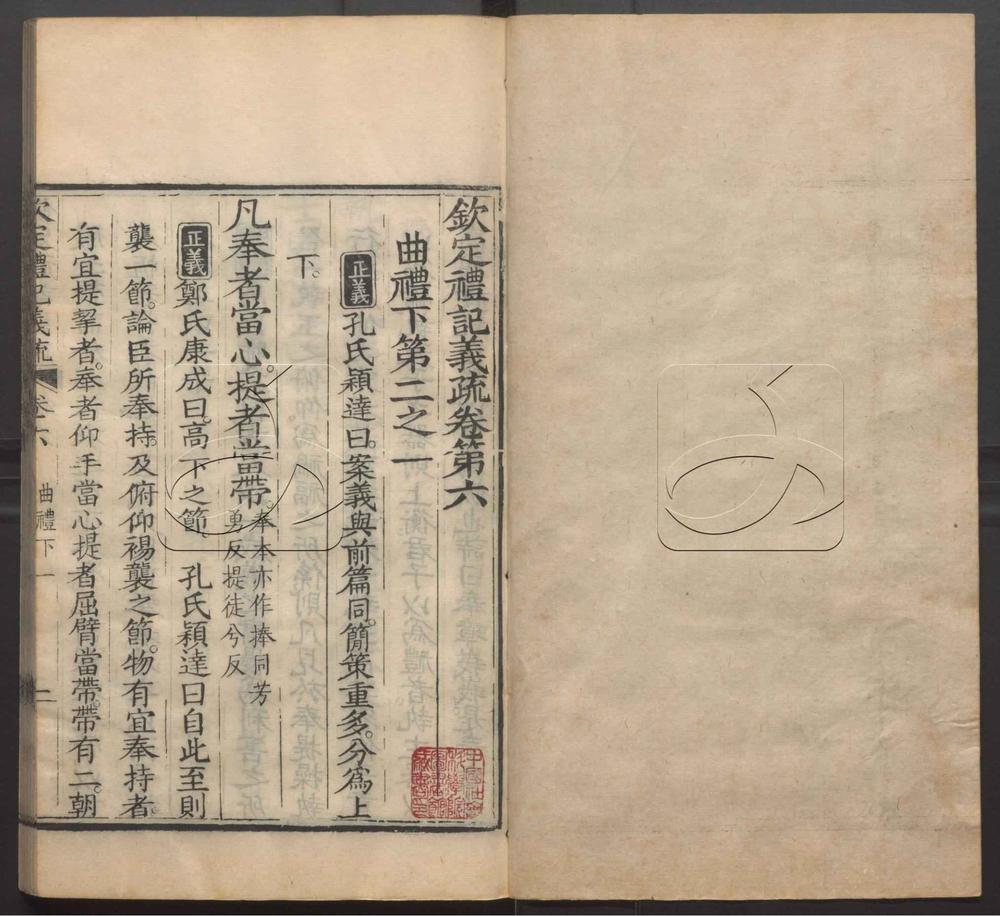 欽定禮記義疏卷第六
曲禮下第二之一
正義孔氏穎達曰案義與前篇同簡策重多分爲上
下
凡奉者當心提者當帶奉本亦作捧同芳
勇反提徒兮反
正義鄭氏康成曰高下之節 孔氏穎達曰自此至則
襲一節論臣所奉持及俯仰裼襲之節物有宜奉持者
有宜提挈者奉者仰手當心提者屈臂當帶帶有二朝
欽定禮記義疏 卷六 曲禮下 一 二